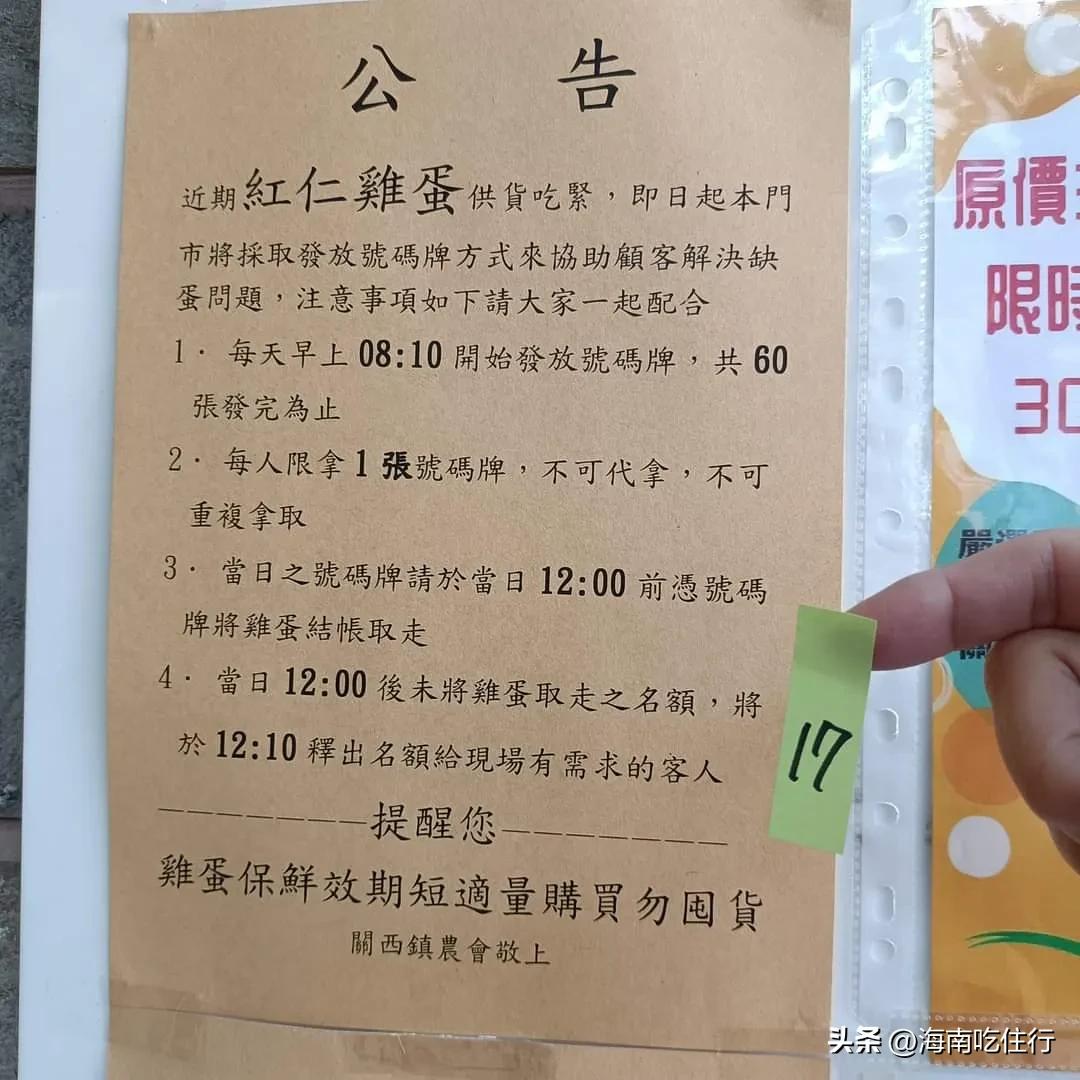 公告
近期紅仁雞蛋供貨吃緊，即日起本門
市將採取發放號碼牌方式來協助顧客解決缺
蛋問題，注意事項如下請大家一起配合
1． 每天早上 08:10 開始發放號碼牌，共 60
張發完為止
2． 每人限拿 1 張號碼牌，不可代拿，不可
重複拿取
3． 當日之號碼牌請於當日 12:00 前憑號碼
牌將雞蛋結帳取走
4． 當日 12:00 後未將雞蛋取走之名額，將
於 12:10 釋出名額給現場有需求的客人
———————提醒您————————
雞蛋保鮮效期短適量購買勿囤貨
關西鎮農會敬上
17
原價
限時
30
嚴選
头条 @海南吃住行